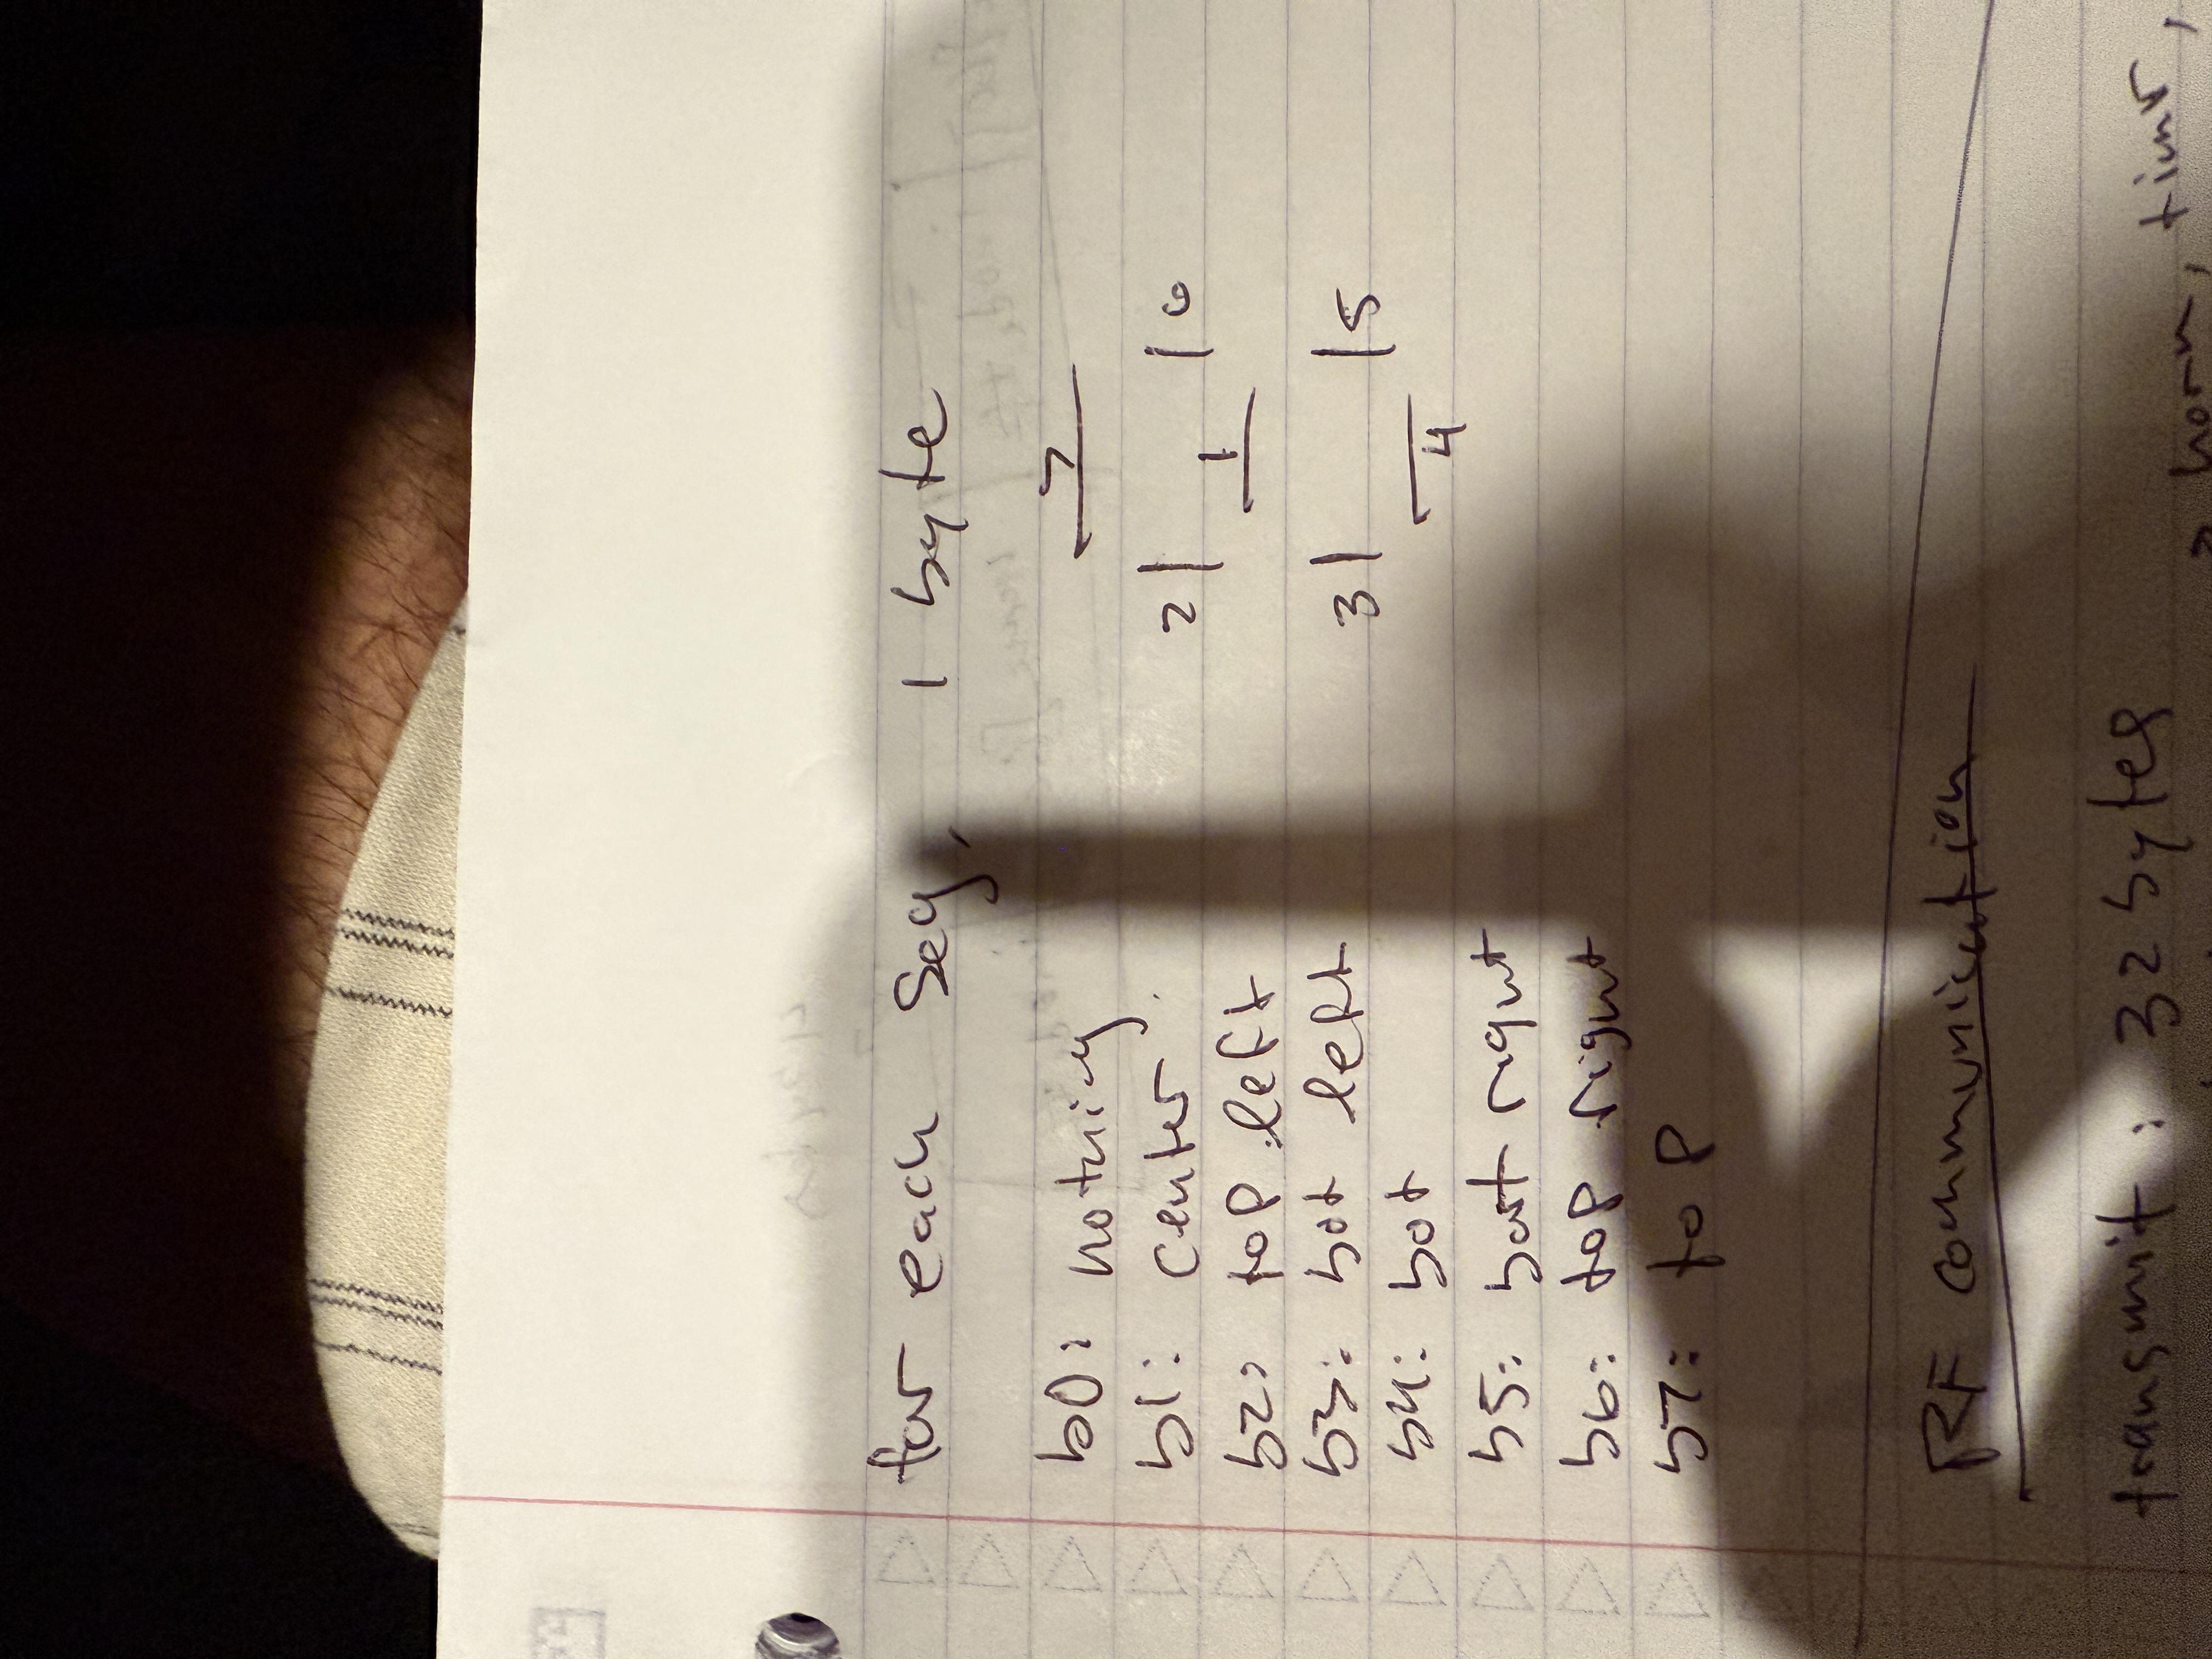 for each seg, 1 byte
b0: nothing
7
b1: center
2| |6
1
b2: top left
b3: bot left
3| |5
b4: bot
4
b5: bot right
b6: top right
b7: top
RF communication
transmit: 32 bytes
horn,